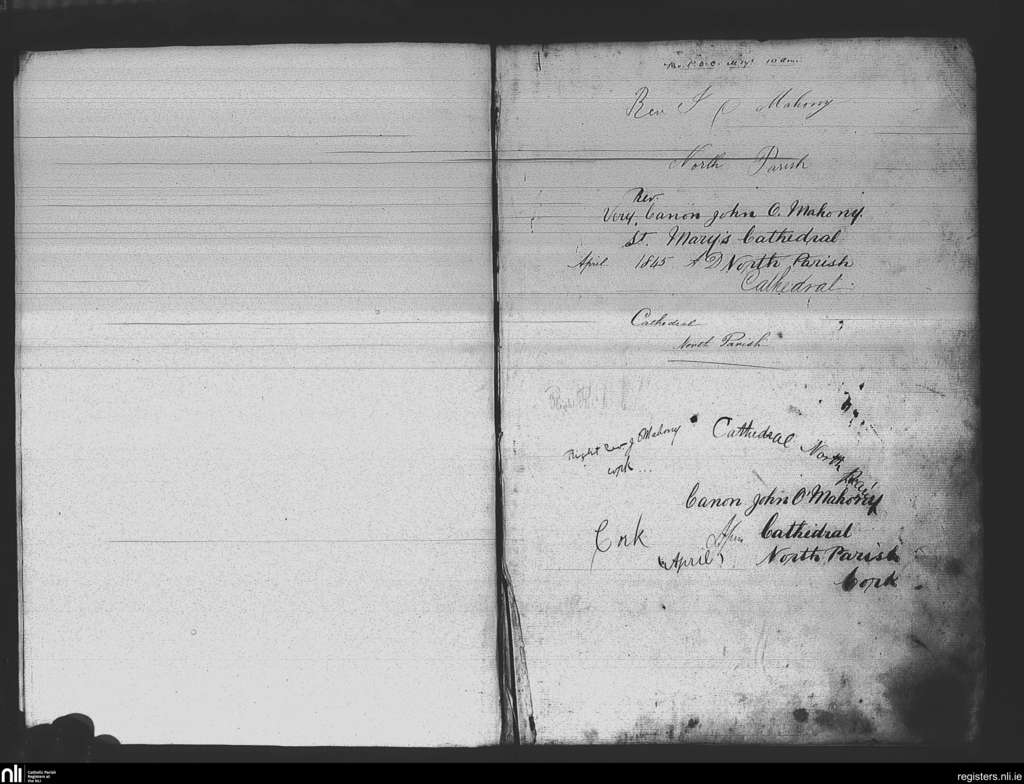 Rev J O Mahony
North Parish
Rev.
Very Canon John O. Mahony.
St. Mary's Cathedral
April 1845 A D North Parish
Cathedral
Cathedral
North Parish
Right Rev J O Mahony
Cork
Cathedral North Parish
Canon John O'Mahony
Cork Cathedral
April North Parish
Cork
nli Catholic Parish
Registers at
the NLI
registers.nli.ie